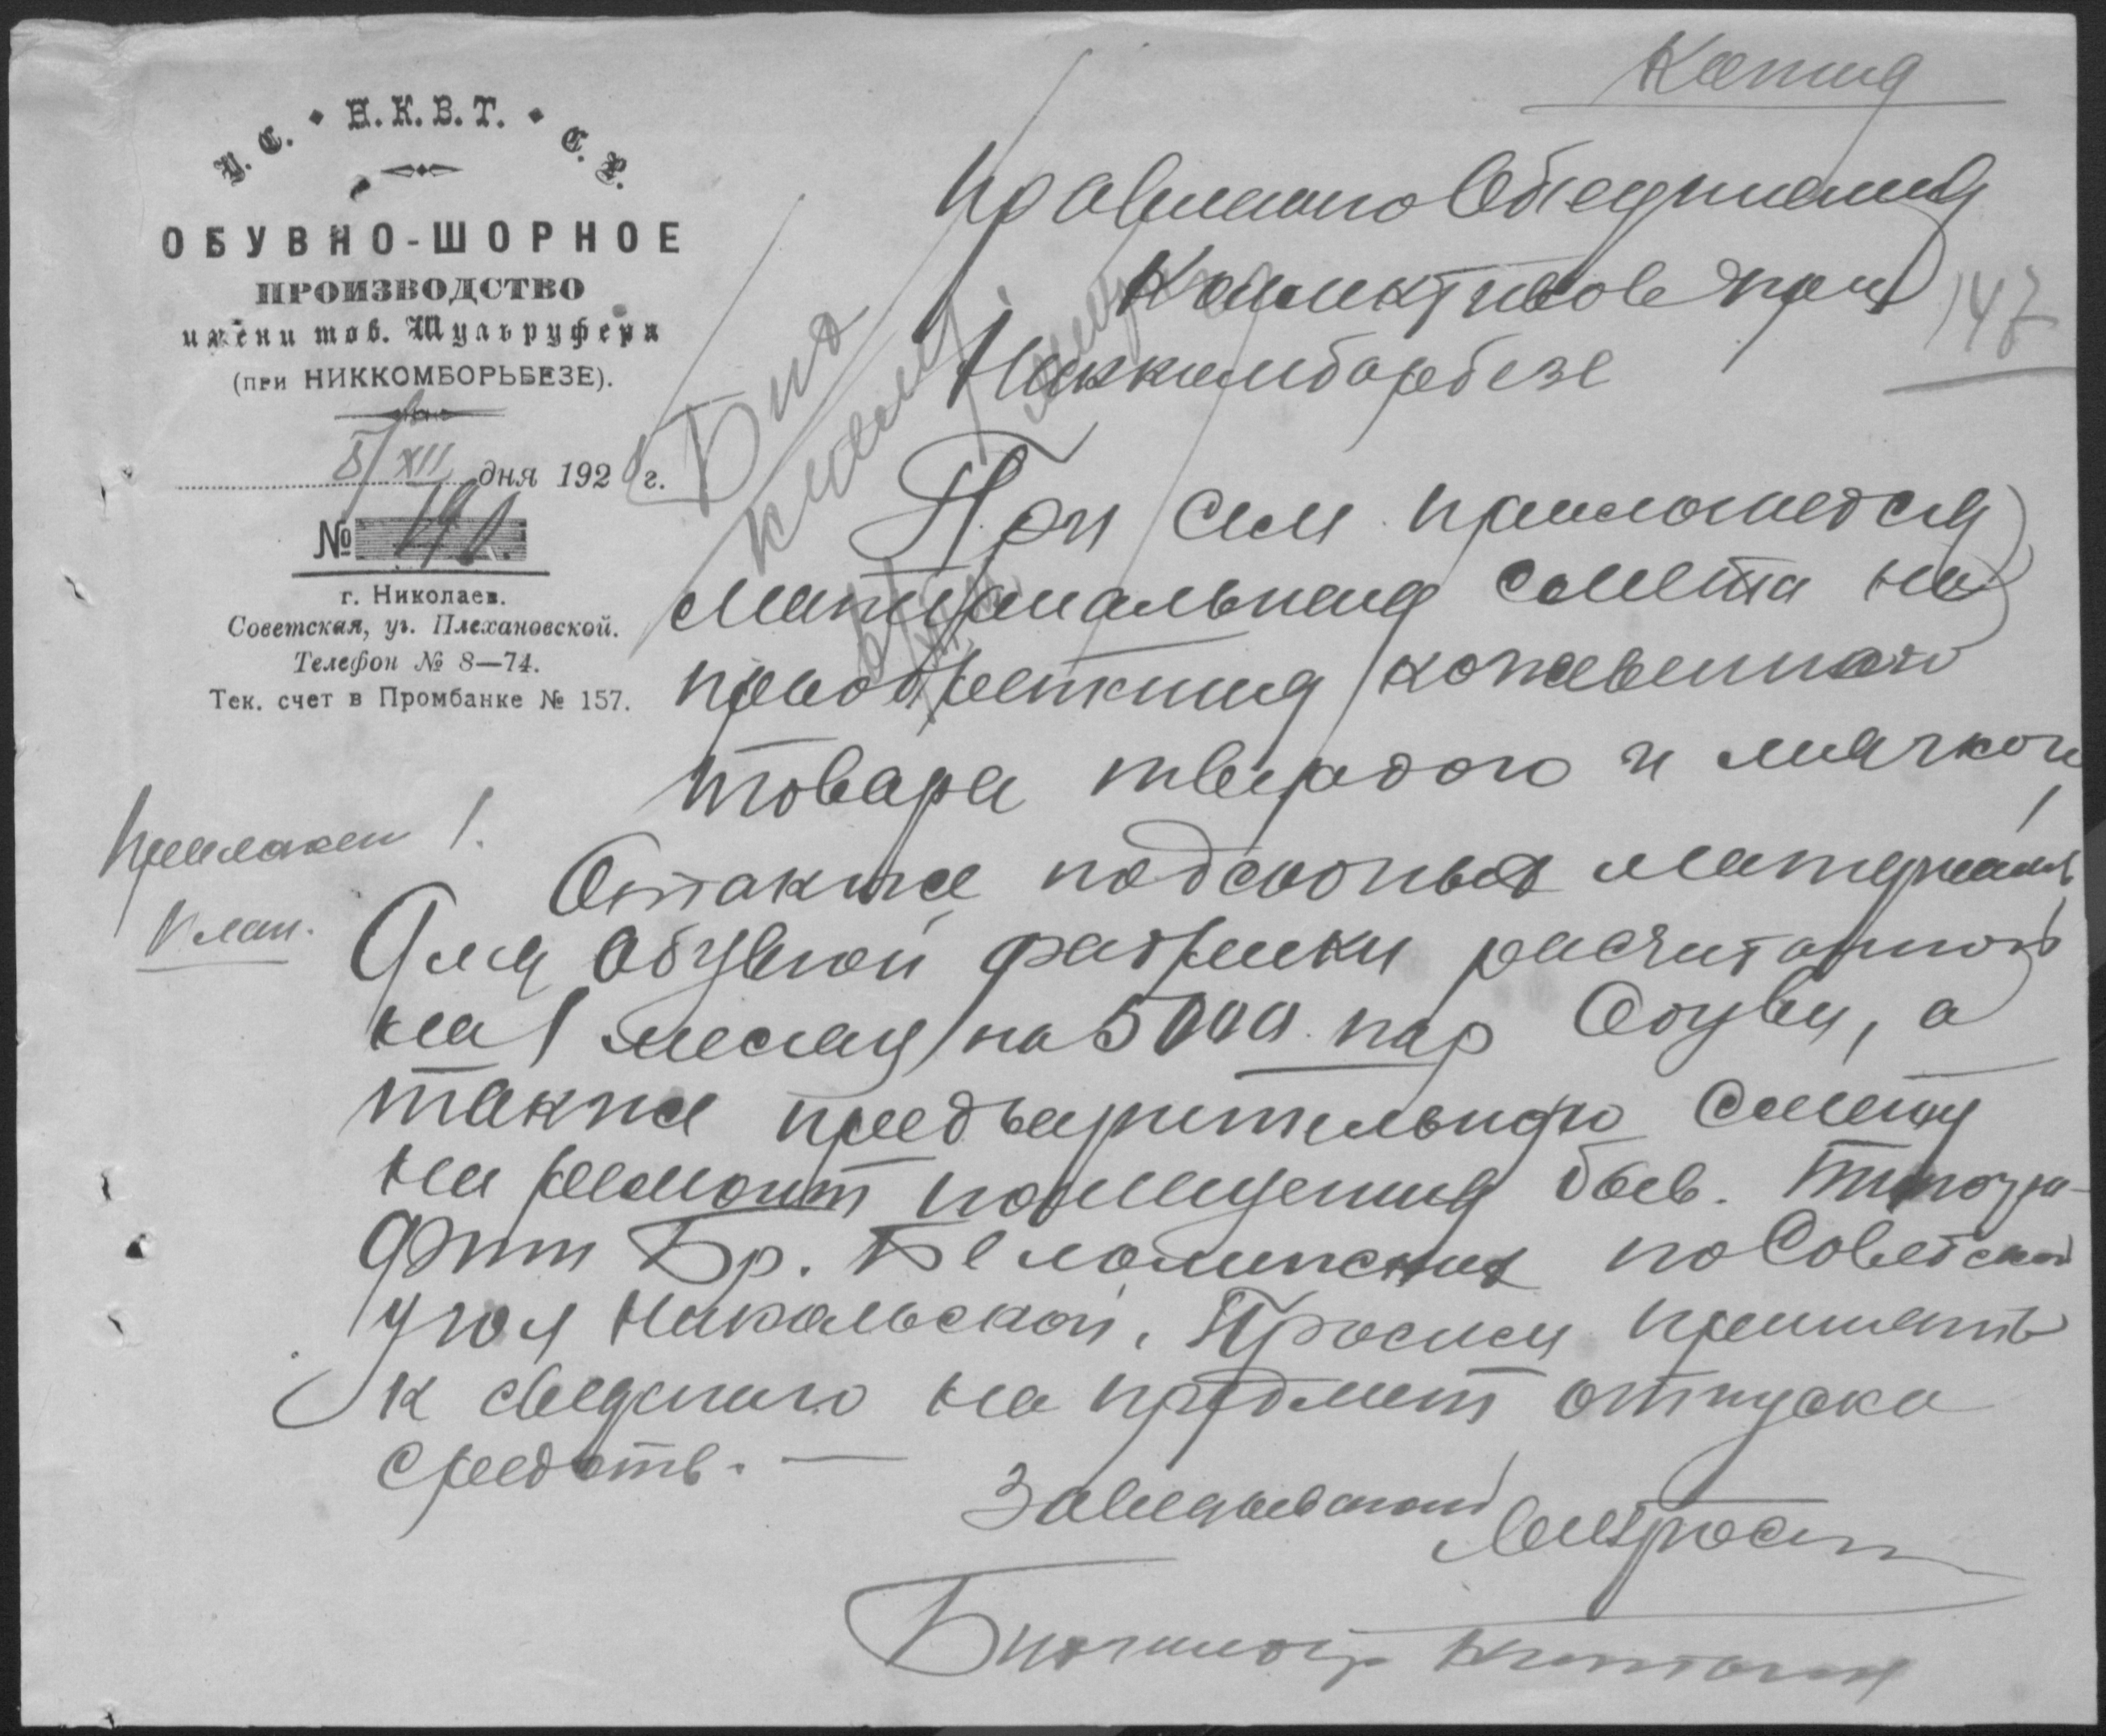 Копия
У. С. Н. К. В. Т. С. Р.
ОБУВНО-ШОРНОЕ
ПРОИЗВОДСТВО
имени тов. Шульруфера
(при НИККОМБОРЬБЕЗЕ).
8/XII дня 1928 г.
№ 190.
г. Николаев.
Советская, уг. Плехановской.
Телефон № 8—74.
Тек. счет в Промбанке № 157.
Правлению Объединения
Коллективов при
Никкомборбезе
147
При сем приложется
материальная смета на
приобретения кожевенного
товара твердого и мягкого
Приложен 1.
план.
Атакже подсобных материалов
Для Обувной фабрики расчитанной
на 1 месяц на 5000 пар Обуви, а
также предварительную смету
на ремонт помещения быв. Типогра-
фии Бр. Белолипских по Советской
угол Никольской. Просим принять
к сведению на предмет отпуска
средств. —
Заведывающий
Бухгалтер